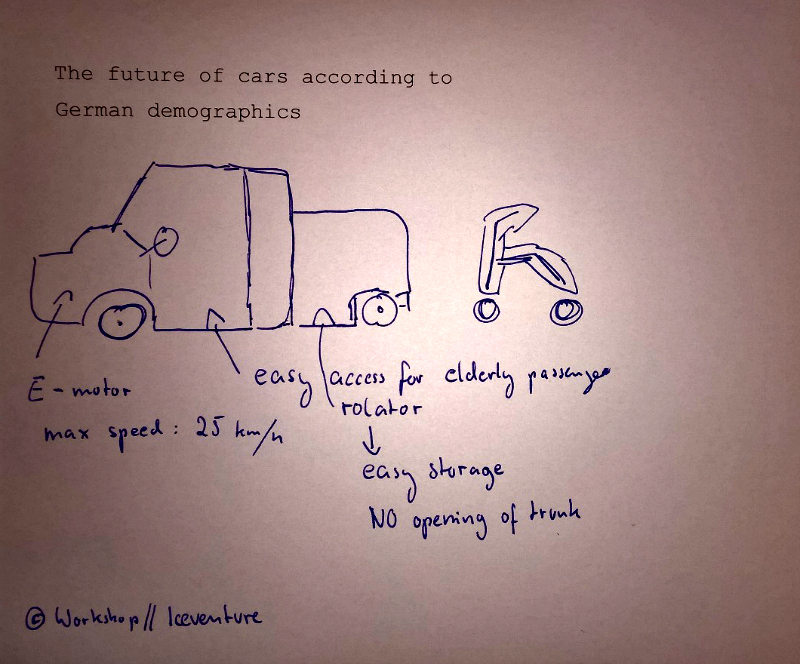 The future of cars according to
German demographics
E-motor
max speed: 25 km/h
easy access for elderly passenger
rolator
easy storage
NO opening of trunk
© Workshop// Iceventure